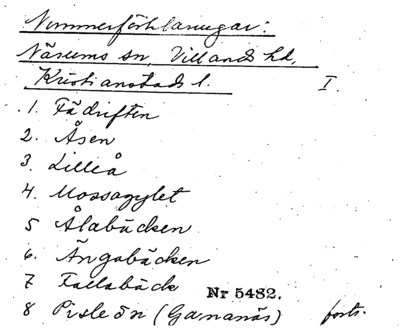 Nummerförklaringar:
Näsums sn, Villands hd,
Kristianstads l. I.
1. Fädriften
2. Åsen
3. Lilleå
4. Mossagylet
5 Ålabäcken
6. Ängabäcken
7 Fallabäck Nr 5482.
8 Pisleön (Gananäs) forts.